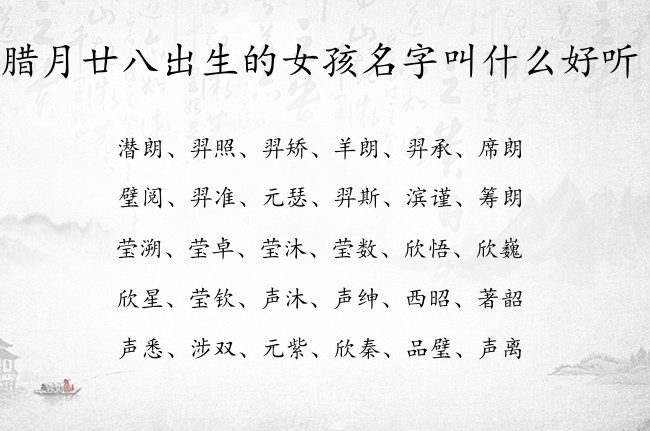 腊月廿八出生的女孩名字叫什么好听
潜朗、羿照、羿矫、羊朗、羿承、席朗
璧阅、羿准、元瑟、羿斯、滨谨、筹朗
莹溯、莹卓、莹沐、莹数、欣悟、欣巍
欣星、莹钦、声沐、声绅、西昭、著韶
声悉、涉双、元紫、欣秦、品璧、声离